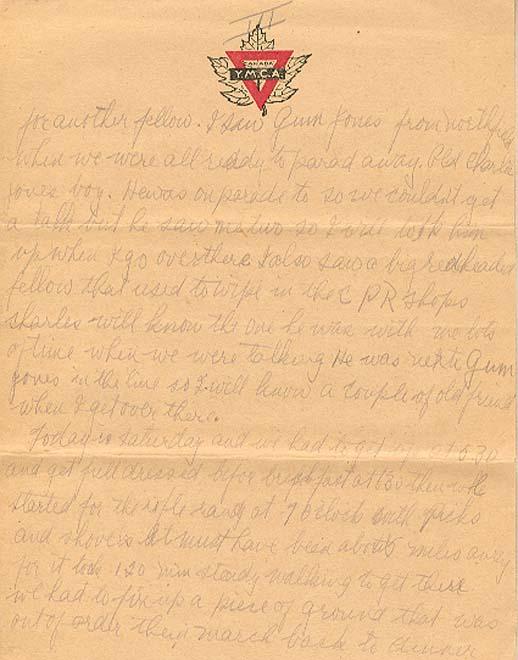 III
CANADA
Y.M.C.A.
for another fellow. I saw Gum Jones from north
when we were all ready to parad away. Old Charlie
jones boy. He was on parade to so we couldnt get
a talk but he saw me two so I will look him
up when I go over there I also saw a big red headed
fellow that used to wipe in the C P R shops
sharles will know the one he was with me lots
of time when we were talking He was next Gum
jones in the line so I will know a couple of old friend
when I get over there.
Today is Saturday and we had to get up at 5 30
and get full dressed befor breakfast at 630 then we
started for the rifle range at 7 o'clock with picks
and shovers it must have been about 5 miles away
for it took 120 min steady walking to get there
we had to fix up a piece of ground that was
out of order then march back to dinner